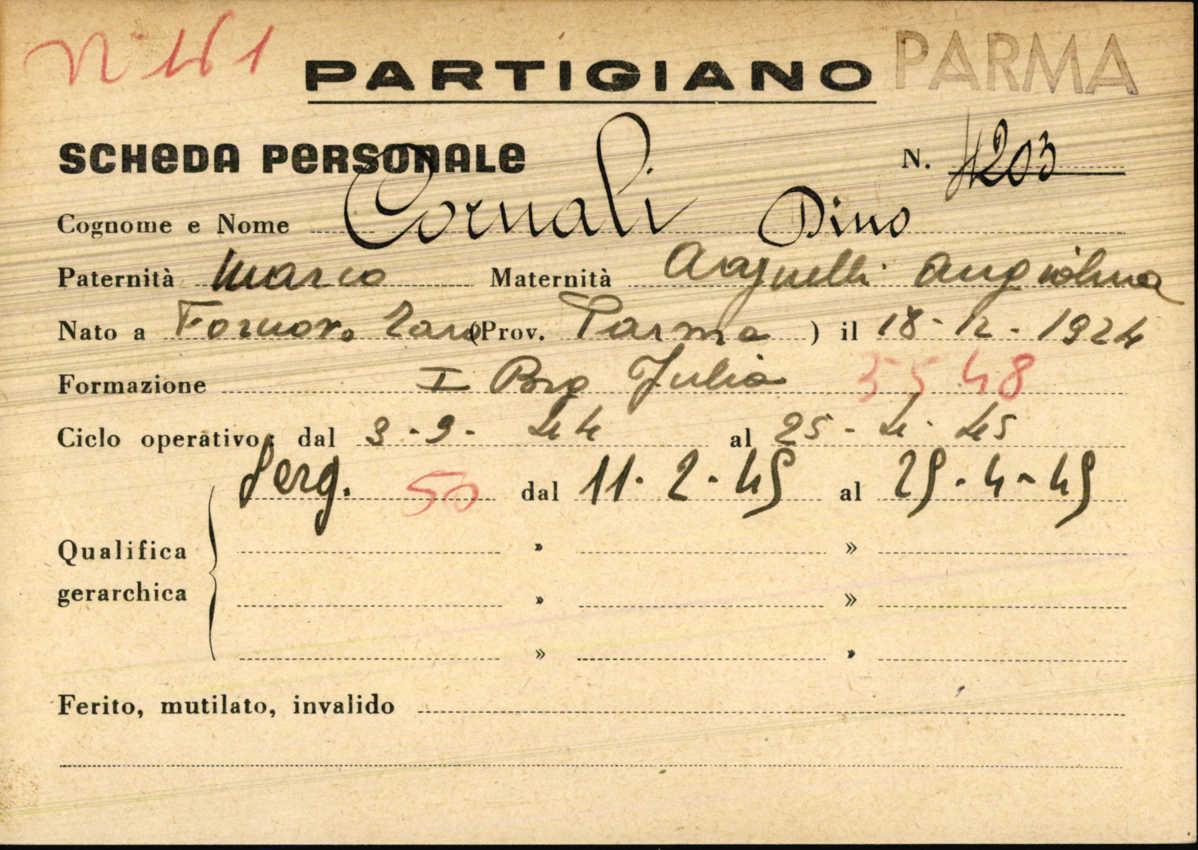 PARTIGIANO PARMA
SCHEDA PERSONALE N. 4203
Cognome e Nome Cornali Dino
Paternità Marco Maternità Angiolina
Nato a Fornovo Taro (Prov. Parma ) il 18-12-1924
Formazione I Brg Julia 5548
Ciclo operativo: dal 3-9-44 al 25-4-45
Serg. 50 dal 11-2-45 al 25-4-45
Qualifica » »
gerarchica » »
» »
Ferito, mutilato, invalido